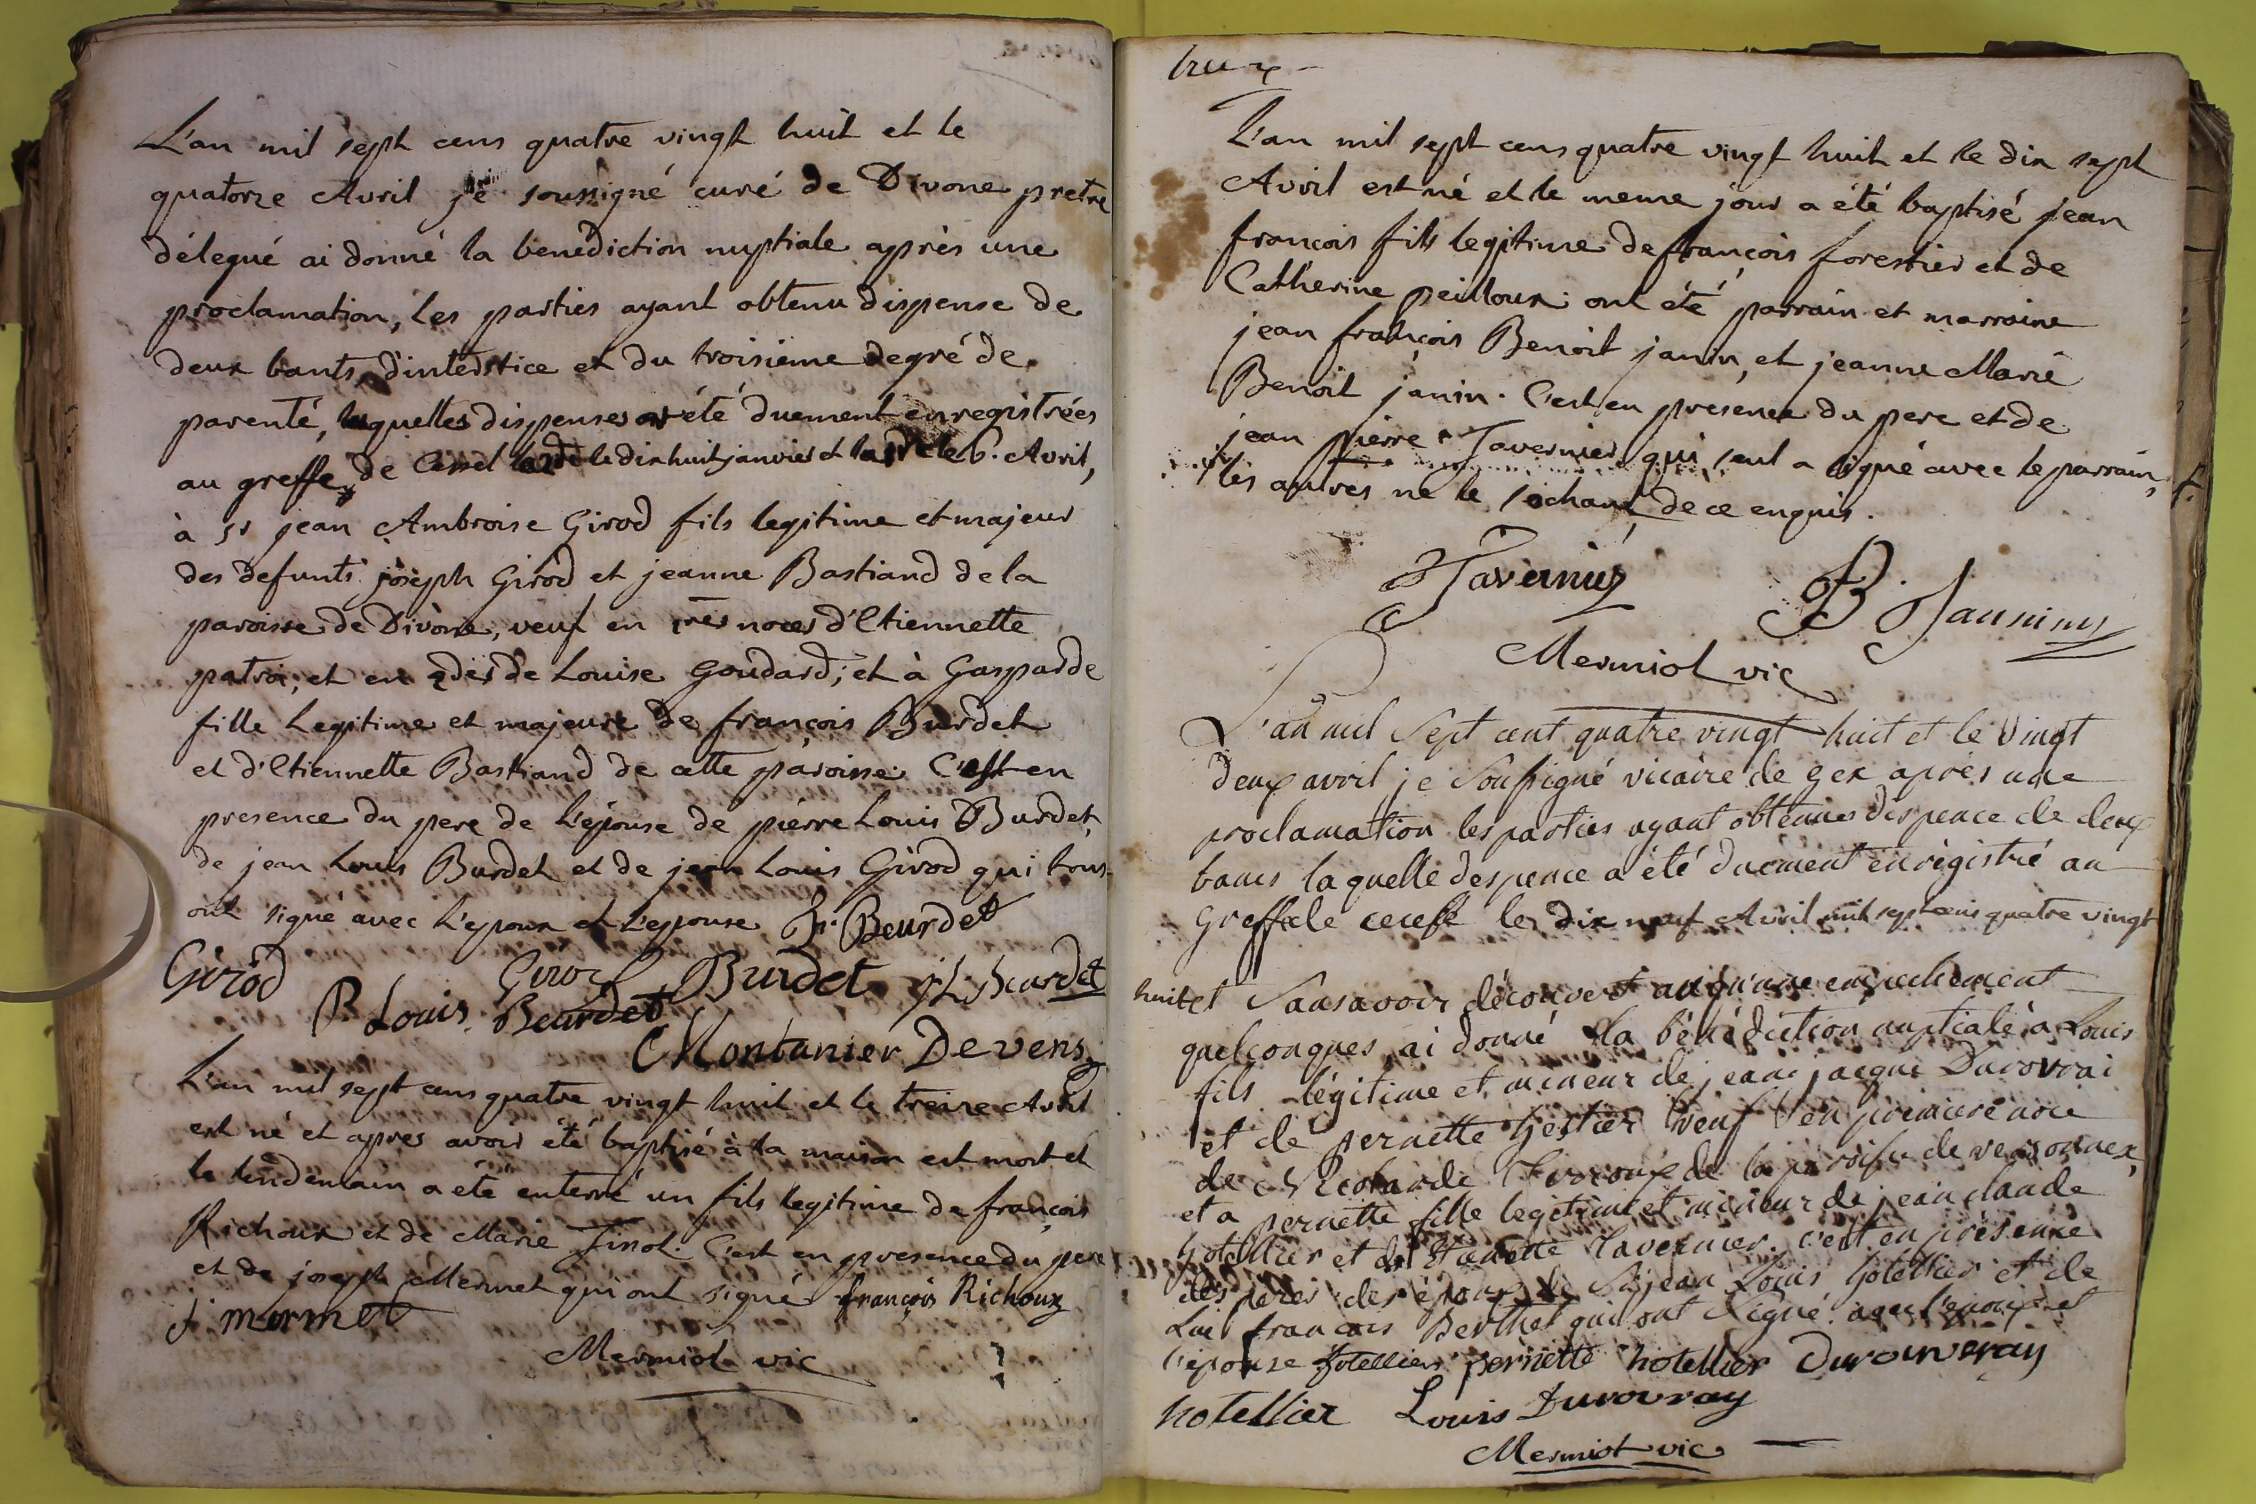 L'an mil sept cens quatre vingt huit et le
quatorze Avril je soussigné curé de Divone pretre
délegué ai donné la benediction nuptiale après une
proclamation, les parties ayant obtenu dispense de
deux bants, d'interstice et du troisieme degré de
parenté, lesquelles dispenses ont été duement enregistrées
au greffe de le dix huit janvier et le 6. Avril,
à sr jean Ambroise Girod fils legitime et majeur
des defunts joseph Girod et jeanne Bastiand de la
paroisse de Divone, veuf en 1res noces d'Etiennette
patroi, et en 2des de Louise Goudard; et à Gasparde
fille legitime et majeure de françois Burdet
et d'Etiennette Bastiand de cette paroisse. C'est en
presence du pere de l'épouse de pierre Louis Burdet,
de jean Louis Burdet et de jean Louis Girod qui tous
ont signé avec l'epoux et l'epouse. fr Beurdet
Girod Girod Burdet j L Beurdet
P Louis Beurdet
Montanier Devens
L'an mil sept cens quatre vingt huit et le treize Avril
est né et apres avoir été baptisé à la maison est mort et
le lendemain a été enterré un fils legitime de françois
Richoux et de Marie Tinol. C'est en presence du pere
et de joseph Mermet qui ont signé françois Richoux
j mermet
Mermiol vic
L'an mil sept cens quatre vingt huit et le dix sept
Avril est né et le meme jour a été baptisé jean
françois fils legitime de françois forestier et de
Catherine peilloux. ont été parrain et marraine
jean françois Benoit janin, et jeanne Marie
Benoit janin. C'est en presence du pere et de
jean pierre Tavernier qui seul a signé avec le parrain,
les autres ne le sachant de ce enquis.
Tavernier B. Jannin
Mermiol vic
L'an mil Sept cent quatre vingt huit et le vingt
deux avril je Soussigné vicaire de gex après une
proclamation les parties ayant obtenues dispence de deux
bancs laquelle despence a été duement enrégistré au
Greffe le dix neuf Avril mil sept cens quatre vingt
huit et Sans avoir découvert aucune empechement
quelconques, ai donné la bénédiction nuptiale à Louis
fils légitime et mineur de jean jacque Durovrai
et de pernette veuf en premiere noce
de de la paroisse de versonnex,
et a pernette fille legitime et mineur de jean claude
hotellier et de Tavernier. c'est en présence
des peres des époux, de Sr jean Louis hotellier et de
françois Berthet qui ont signé avec l'epoux et
l'épouse hotellier pernette hotellier Durouveray
hotellier Louis Durovray
Mermiol vic